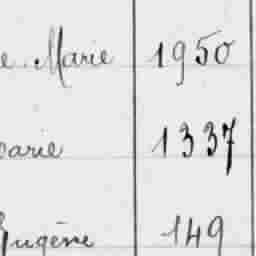 e Marie 1950
arie 1337
Eugène 149